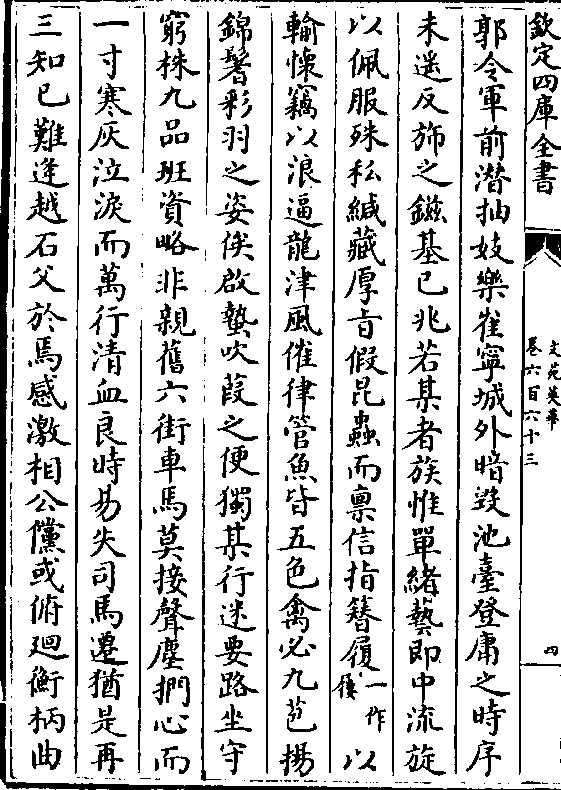 欽定四庫全書
文苑英華
卷六百六十三
四
郭令軍前潛抽妓樂崔寧城外暗毀池臺登庸之時序
未遥反斾之鎡基已兆若某者族惟單緒藝即中流旋
以佩服殊私緘藏厚旨假昆蟲而禀信指簪履一作屨以
輸懷竊以浪逼龍津風催律管魚皆五色禽必九苞揚
錦鬐彩羽之姿俟啟蟄吹葭之便獨某行迷要路坐守
窮株九品班資略非親舊六街車馬莫接聲塵捫心而
一寸寒灰泣淚而萬行清血良時易失司馬遷猶是再
三知己難逢越石父於焉感激相公儻或俯廻衡柄曲